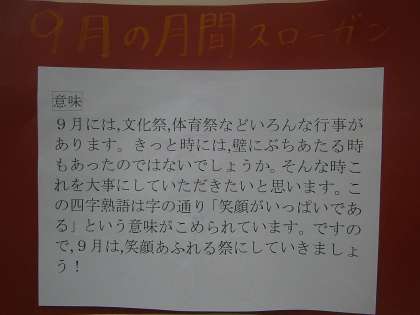 9月の月間スローガン
意味
９月には,文化祭,体育祭などいろんな行事が
あります。きっと時には,壁にぶちあたる時
もあったのではないでしょうか。そんな時こ
れを大事にしていただきたいと思います。こ
の四字熟語は字の通り「笑顔がいっぱいであ
る」という意味がこめられています。ですの
で,９月は,笑顔あふれる祭にしていきましょ
う！